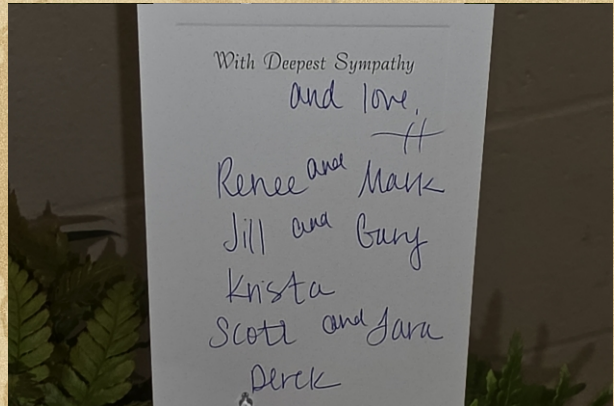 With Deepest Sympathy
and love,
Renee and Mark
Jill and Gary
Krista
Scott and Tara
Derek